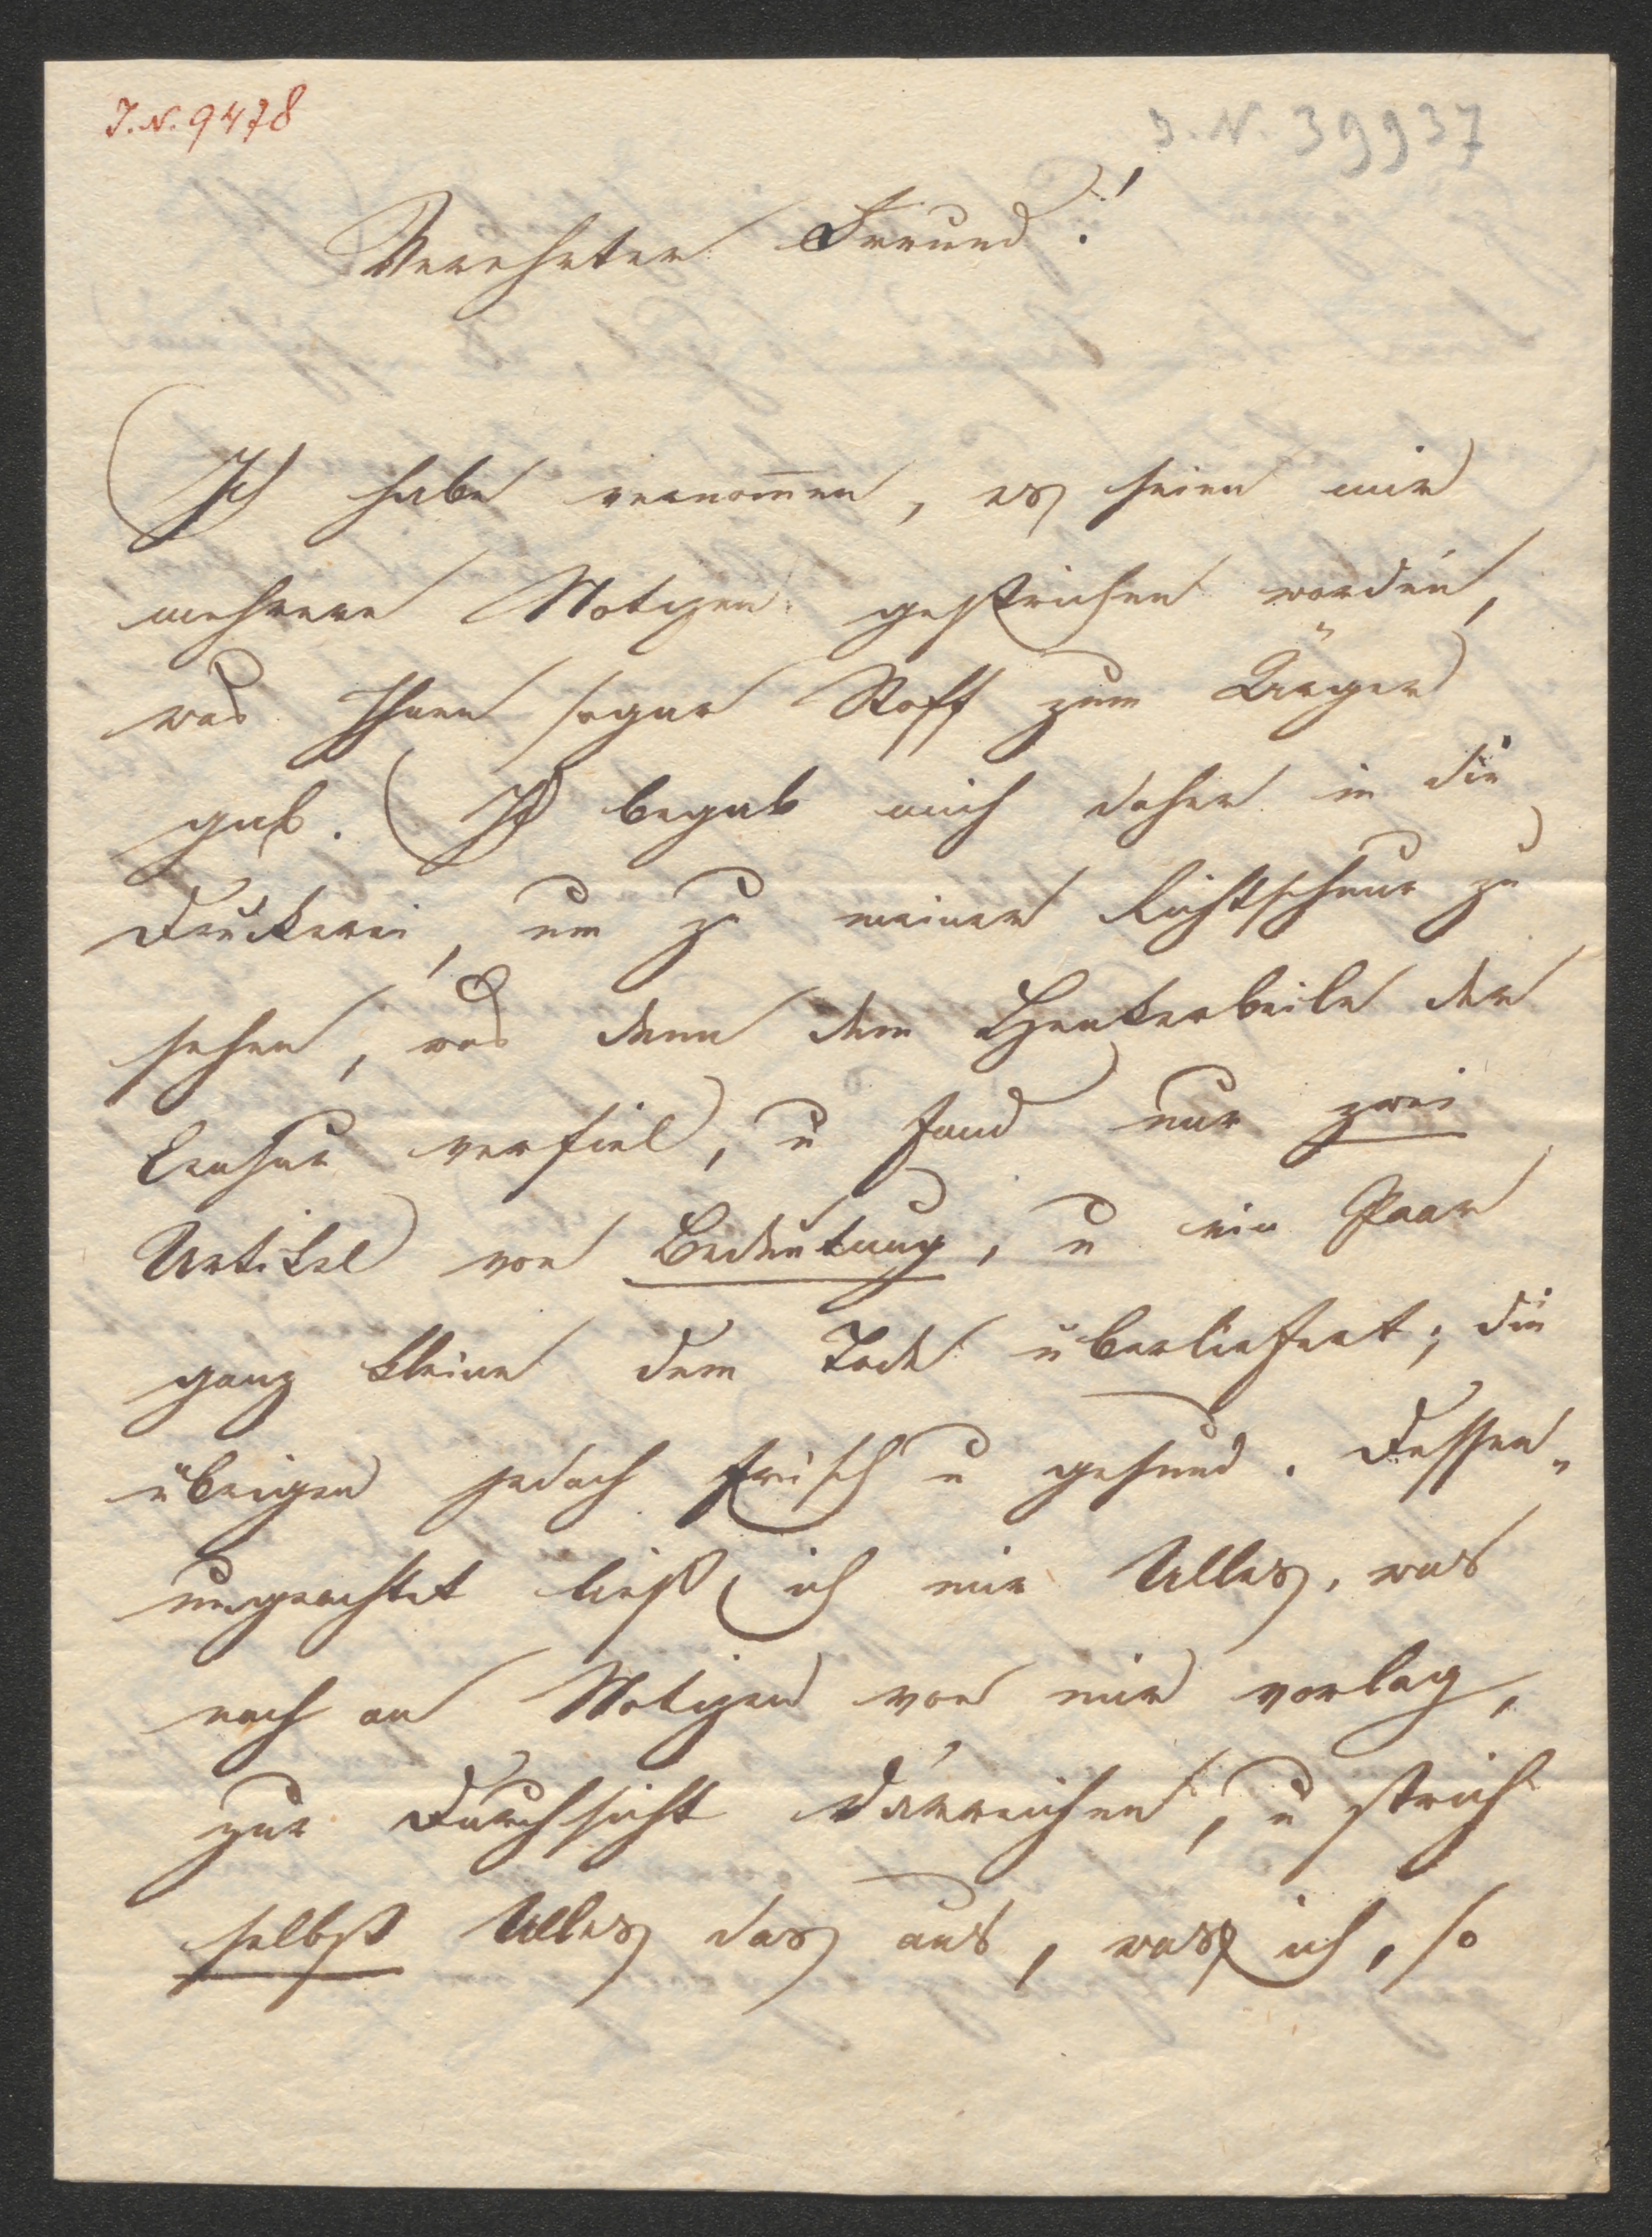 J.N. 9478
J.N. 39937
Verehrter Freund!
Ich habe vernom̄en, es seien mir
mehrere Notizen gestrichen worden,
was Ihnen sogar Stoff zum Ärger
gab. Ich begab mich daher in die
Druckerei, um zu meiner Richtschnur zu
sehen, was denn dem Henkerbeile der
Censur verfiel, u fand nur zwei
Artikel von Bedeutung, u ein Paar
ganz kleine dem Tode überliefert; die
übrigen jedoch frisch u gesund. Dessen„
ungeachtet ließ ich mir Alles, was
noch an Notizen von mir vorlag,
zur Durchsicht darreichen, u strich
selbst Alles das aus, was ich, so